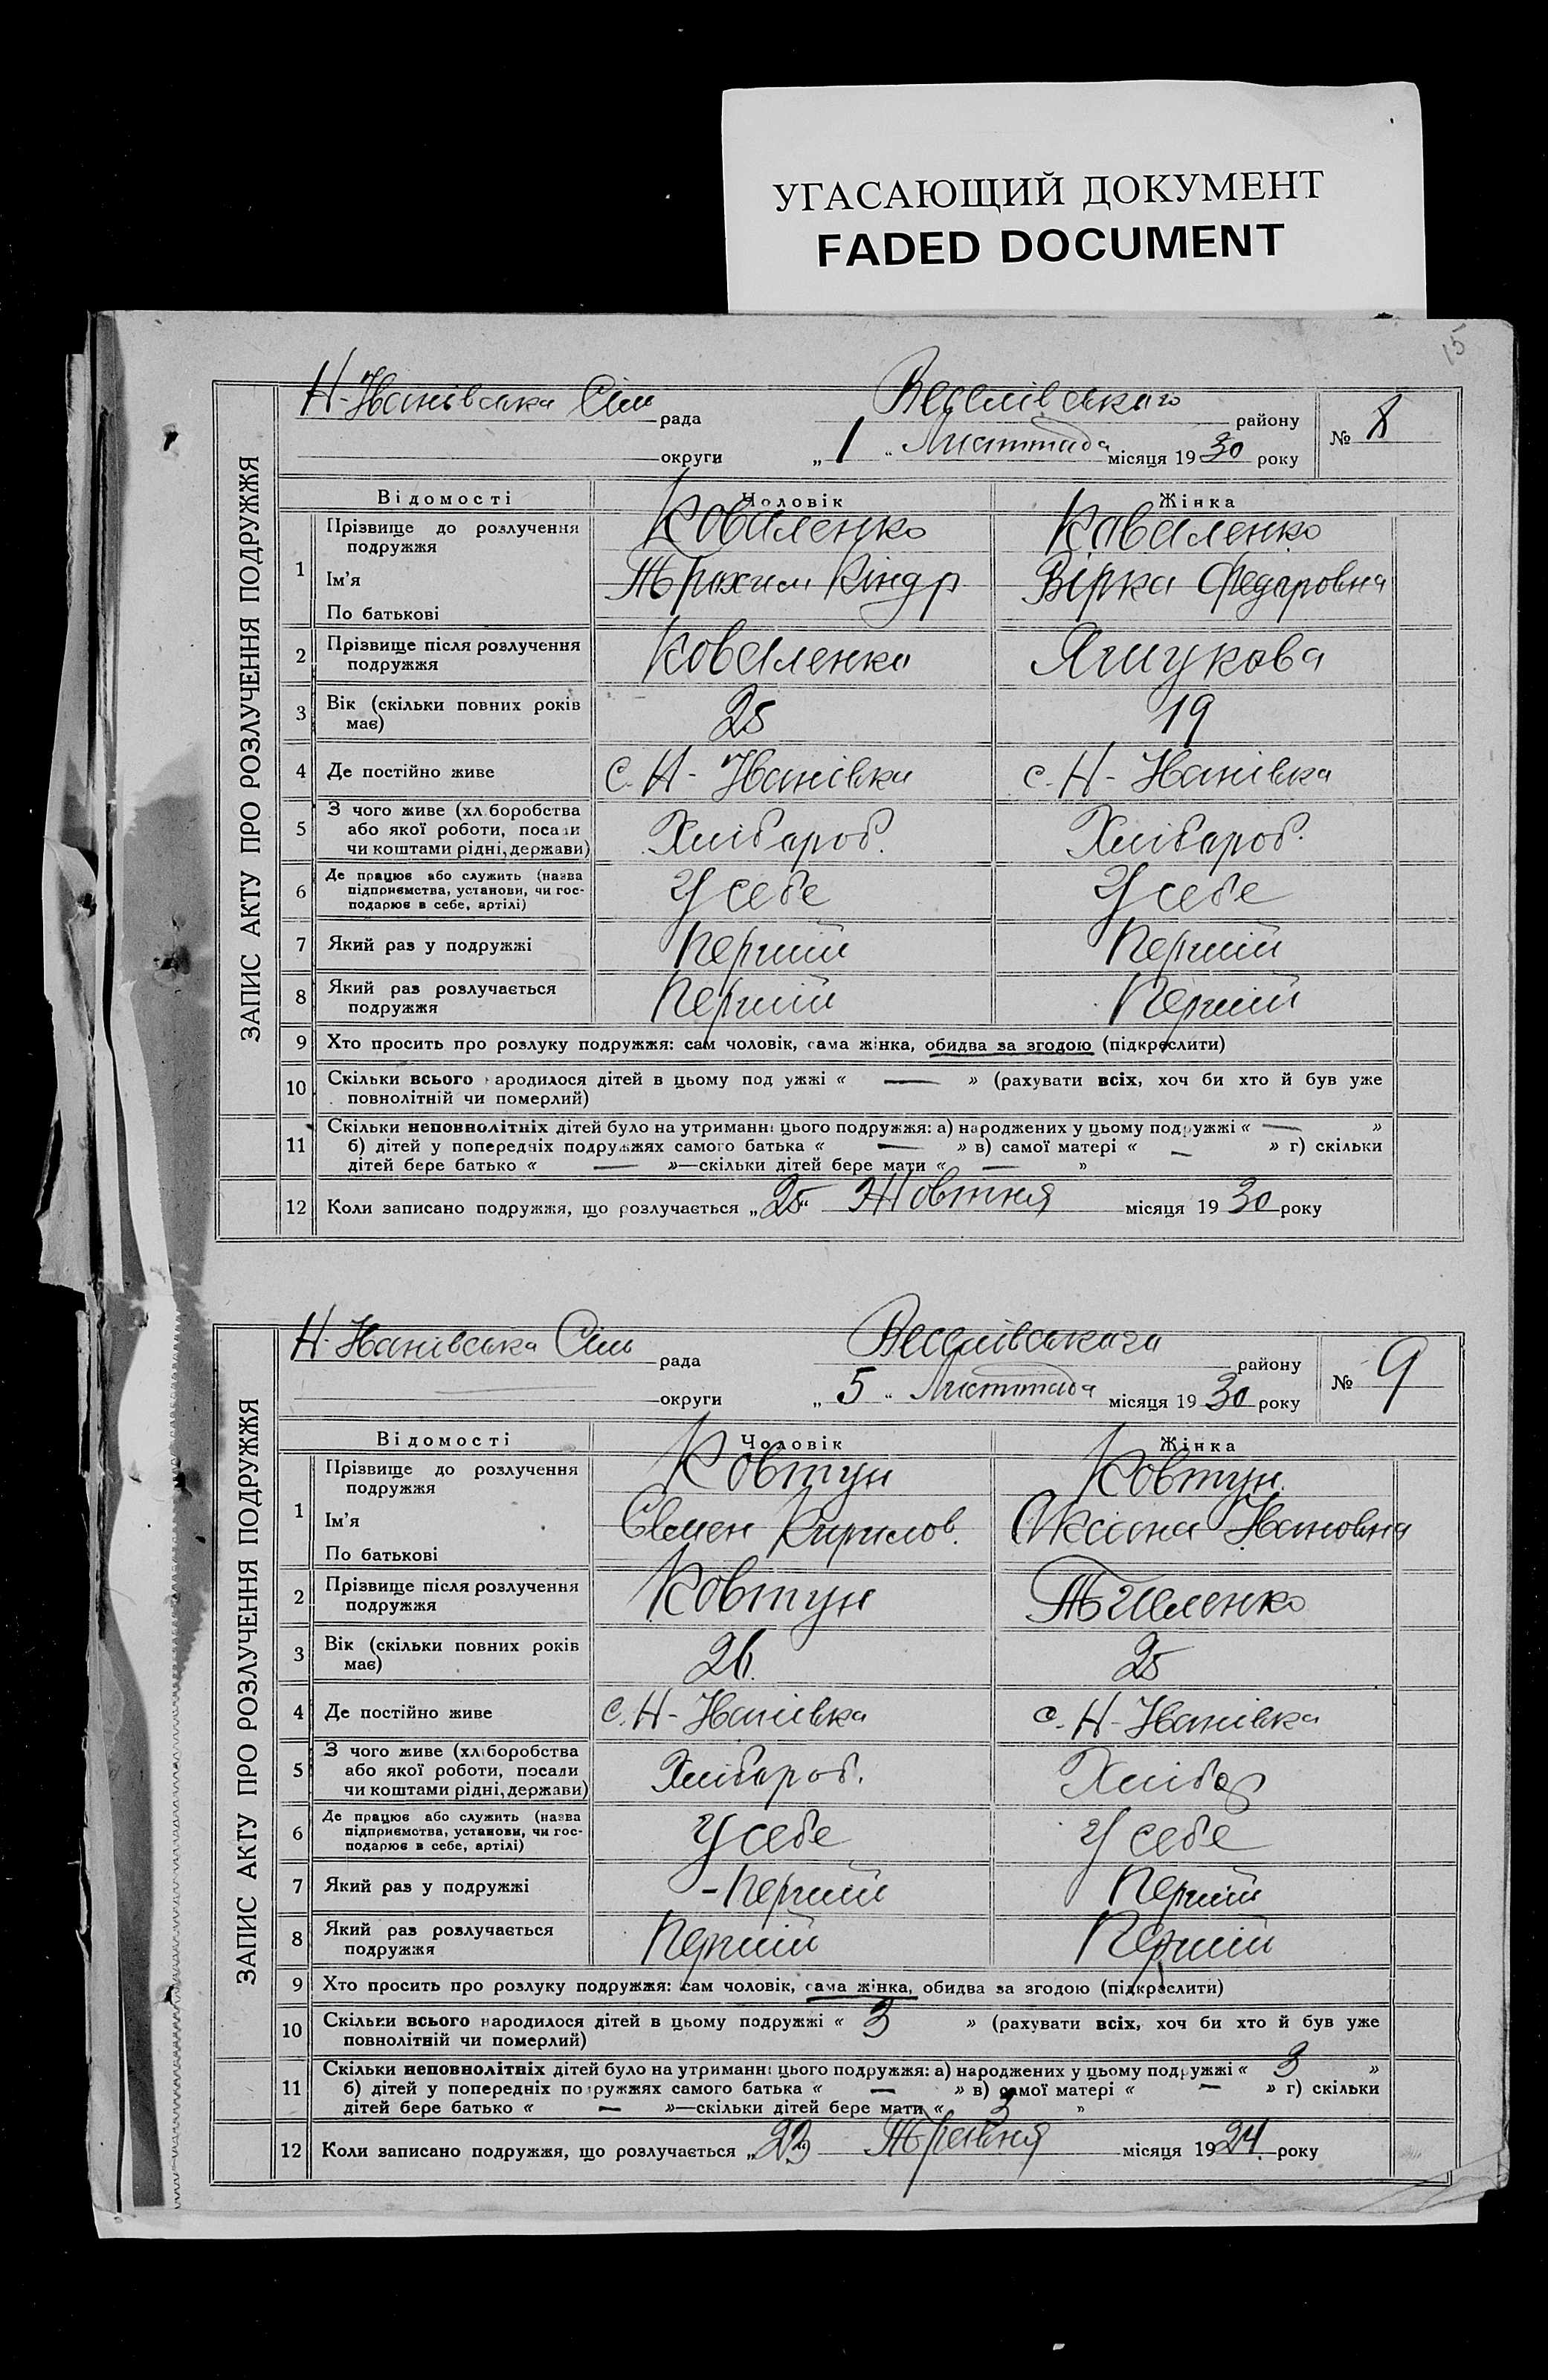 УГАСАЮЩИЙ ДОКУМЕНТ
FADED DOCUMENT
15
ЗАПИС АКТУ ПРО РОЗЛУЧЕННЯ ПОДРУЖЖЯ
Н-Іванівська Сіль рада Веселівського району № 8
округи „ 1 “ Листопада місяця 1930 року
Відомості Чоловік Жінка
1 Прізвище до розлучення подружжя Коваленко Коваленко
Ім'я Трохим Кіндр Вірка Федоровна
По батькові
2 Прізвище після розлучення подружжя Коваленко
3 Вік (скільки повних років має) 25 19
4 Де постійно живе с. Н-Іванівка с. Н-Іванівка
5 З чого живе (хл боробства або якої роботи, посади чи коштами рідні, держави) Хлібороб. Хлібороб.
6 Де працює або служить (назва підприємства, установи, чи господарює в себе, артілі) У себе У себе
7 Який раз у подружжі Перший Перший
8 Який раз розлучається подружжя Перший Перший
9 Хто просить про розлуку подружжя: сам чоловік, сама жінка, обидва за згодою (підкреслити)
10 Скільки всього народилося дітей в цьому подружжі « — » (рахувати всіх, хоч би хто й був уже
повнолітній чи померлий)
11 Скільки неповнолітніх дітей було на утриманні цього подружжя: а) народжених у цьому подружжі « — »
б) дітей у попередніх подружжях самого батька « — » в) самої матері « — » г) скільки
дітей бере батько « — »—скільки дітей бере мати « — »
12 Коли записано подружжя, що розлучається „25“ Жовтня місяця 1930 року
ЗАПИС АКТУ ПРО РОЗЛУЧЕННЯ ПОДРУЖЖЯ
Н-Іванівська Сіль рада Веселівського району № 9
округи „ 5 “ Листопада місяця 1930 року
Відомості Чоловік Жінка
1 Прізвище до розлучення подружжя Ковтун Ковтун
Ім'я Семен Кирилов. Оксана Івановна
По батькові
2 Прізвище після розлучення подружжя Ковтун
3 Вік (скільки повних років має) 26. 25
4 Де постійно живе с. Н-Іванівка с. Н-Іванівка
5 З чого живе (хліборобства або якої роботи, посади чи коштами рідні, держави) Хлібороб. Хлібор
6 Де працює або служить (назва підприємства, установи, чи господарює в себе, артілі) У себе У себе
7 Який раз у подружжі -Перший Перший
8 Який раз розлучається подружжя Перший Перший
9 Хто просить про розлуку подружжя: сам чоловік, сама жінка, обидва за згодою (підкреслити)
10 Скільки всього народилося дітей в цьому подружжі « 3 » (рахувати всіх, хоч би хто й був уже
повнолітній чи померлий)
11 Скільки неповнолітніх дітей було на утриманні цього подружжя: а) народжених у цьому подружжі « 3 »
б) дітей у попередніх подружжях самого батька « — » в) самої матері « — » г) скільки
дітей бере батько « — »—скільки дітей бере мати « 3 »
12 Коли записано подружжя, що розлучається „23 місяця 1924 року